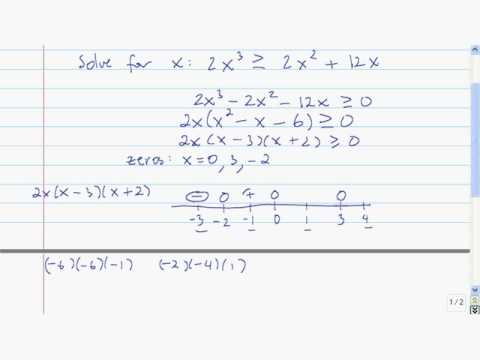 Solve for x: 2x³ ≥ 2x² + 12x
2x³ - 2x² - 12x ≥ 0
2x(x² - x - 6) ≥ 0
2x(x - 3)(x + 2) ≥ 0
zeros: x = 0, 3, -2
2x(x - 3)(x + 2)
- 0 + 0 0
-3 -2 -1 0 1 3 4
(-6)(-6)(-1) (-2)(-4)(1)
1/2